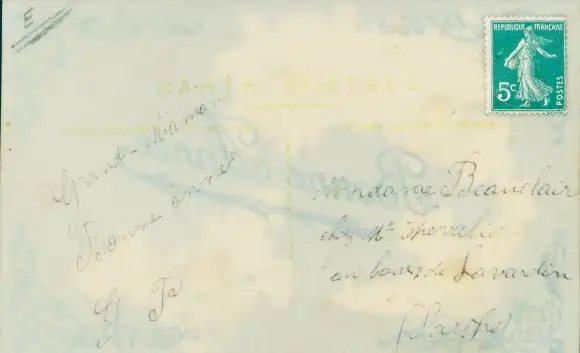 E
REPUBLIQUE FRANÇAISE
5c
POSTES
CARTE POSTALE
Grand-Maman
Bonne année
G P
Madame Beauclair
chez Mr
au bourg de Lavardin
(Sarthe)